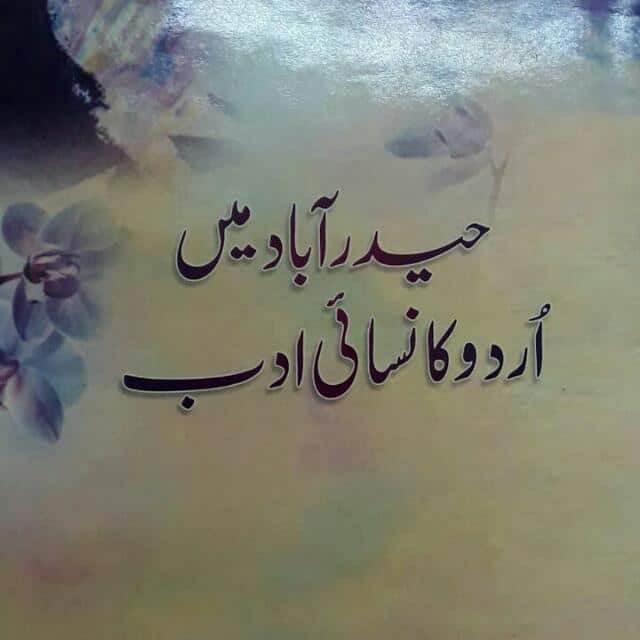 حیدرآباد میں
اُردو کا نسائی ادب